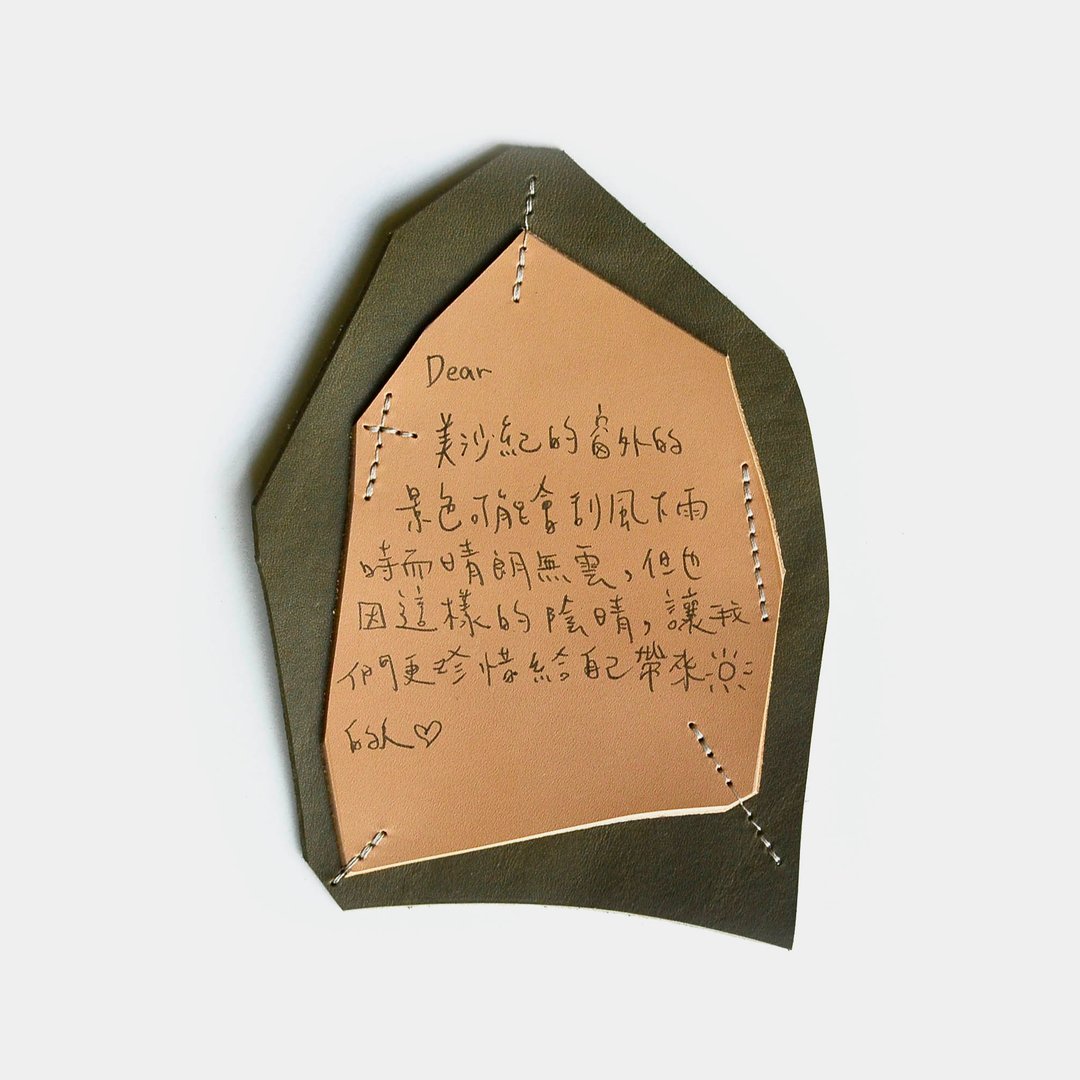 Dear
美沙紀的窗外的
景色可能會刮風下雨
時而晴朗無雲,但也
因這樣的陰晴,讓我
們更珍惜給自己帶來☼
的人♡